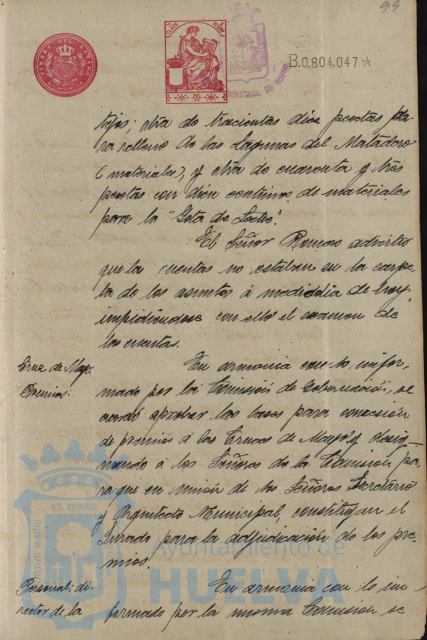 99
B.0.804.047*
tejos; otra de trescientas diez pesetas pa-
ra relleno de las lagunas del Matadero
(materiales), y otra de cuarenta y tres
pesetas con diez centimos de materiales
para la "Gota de Leche".
El Señor Romero advirtió
que las cuentas no estaban en la carpe-
ta de los asuntos á medio dia de hoy
impidiendose con ello el examen de
las cuentas.
Cruz de Mayo
Premios:
En armonia con lo infor-
mado por la Comisión de Gobernación, se
acordó aprobar las bases para concesión
de premios á las Cruces de Mayo y desig-
nando á los Señores de la Comisión pa-
ra que en unión de los Señores Secretario
y Arquitecto Municipal, constituyan el
Jurado para la adjudicación de los pre-
mios.
Personal: di-
rector de la
En armonia con lo in-
formado por la misma Comisión se
Ayuntamiento de
HUELVA